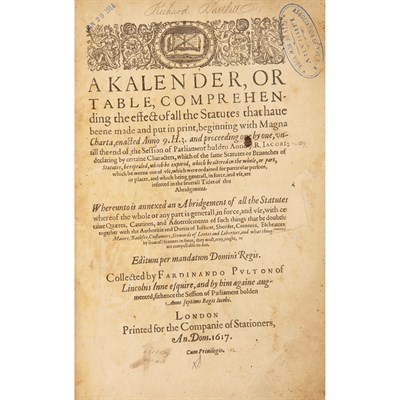 Richard Bartlett
A KALENDER, OR
TABLE, COMPREHEN-
ding the effect of all the Statutes that haue
beene made and put in print, beginning with Magna
Charta, enacted Anno 9. H. 3. and proceeding one by one, vn-
till the end of the Session of Parliament holden Anno R. IACOBI:
declaring by certaine Characters, which of the same Statutes or Branches of
Statutes, be repealed, which be expired, which be altered in the whole, or part,
which be worne out of vse, which were ordained for particular persons,
or places, and which being generall, in force, and vse, are
inserted in the seuerall Titles of this
Abridgement.
Whereunto is annexed an Abridgement of all the Statutes
whereof the whole or any part is generall, in force, and vse, with cer-
taine Quæres, Cautions, and Aduertisements of such things that be doubtfull:
together with the Authoritie and Duties of Iustices, Sherifes, Coroners, Escheators
Maiors, Bailifes, Customers, Stewards of Leetes and Liberties, and what things
by seuerall Statutes in force, they may, ought, or
are compellable to doe.
Editum per mandatum Domini Regis.
Collected by FARDINANDO PVLTON of
Lincolns Inne esquire, and by him againe aug-
mented, sithence the Session of Parliament holden
Anno septimo Regis Iacobi.
LONDON
Printed for the Companie of Stationers,
An. Dom. 1617.
Cum Privilegio.